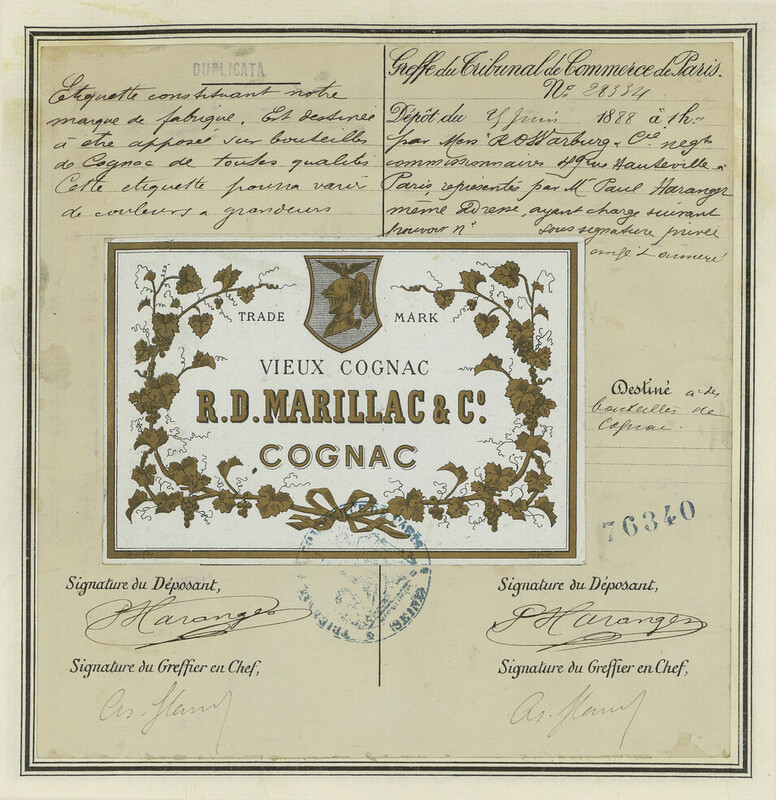 DUPLICATA
Etiquette constituant notre
marque de fabrique. Est destinée
à etre apposée sur bouteilles
de Cognac de toutes qualités
Cette etiquette pourra varier
de couleurs & grandeurs
Greffe du Tribunal de Commerce de Paris.
No. 28334
Dépôt du Juin 1888 à 1h
par Mess. R D Warburg & Cie negts
commissionnaires 49 rue Hauteville à
Paris, représentés par Mr Paul Haranger
même adresse, ayant charge suivant
pouvoir sous signature privée
TRADE MARK
VIEUX COGNAC
R.D. MARILLAC & Co.
COGNAC
Destiné à des
bouteilles de
Cognac.
76340
Signature du Déposant,
PHaranger
Signature du Greffier en Chef,
Signature du Déposant,
PHaranger
Signature du Greffier en Chef,